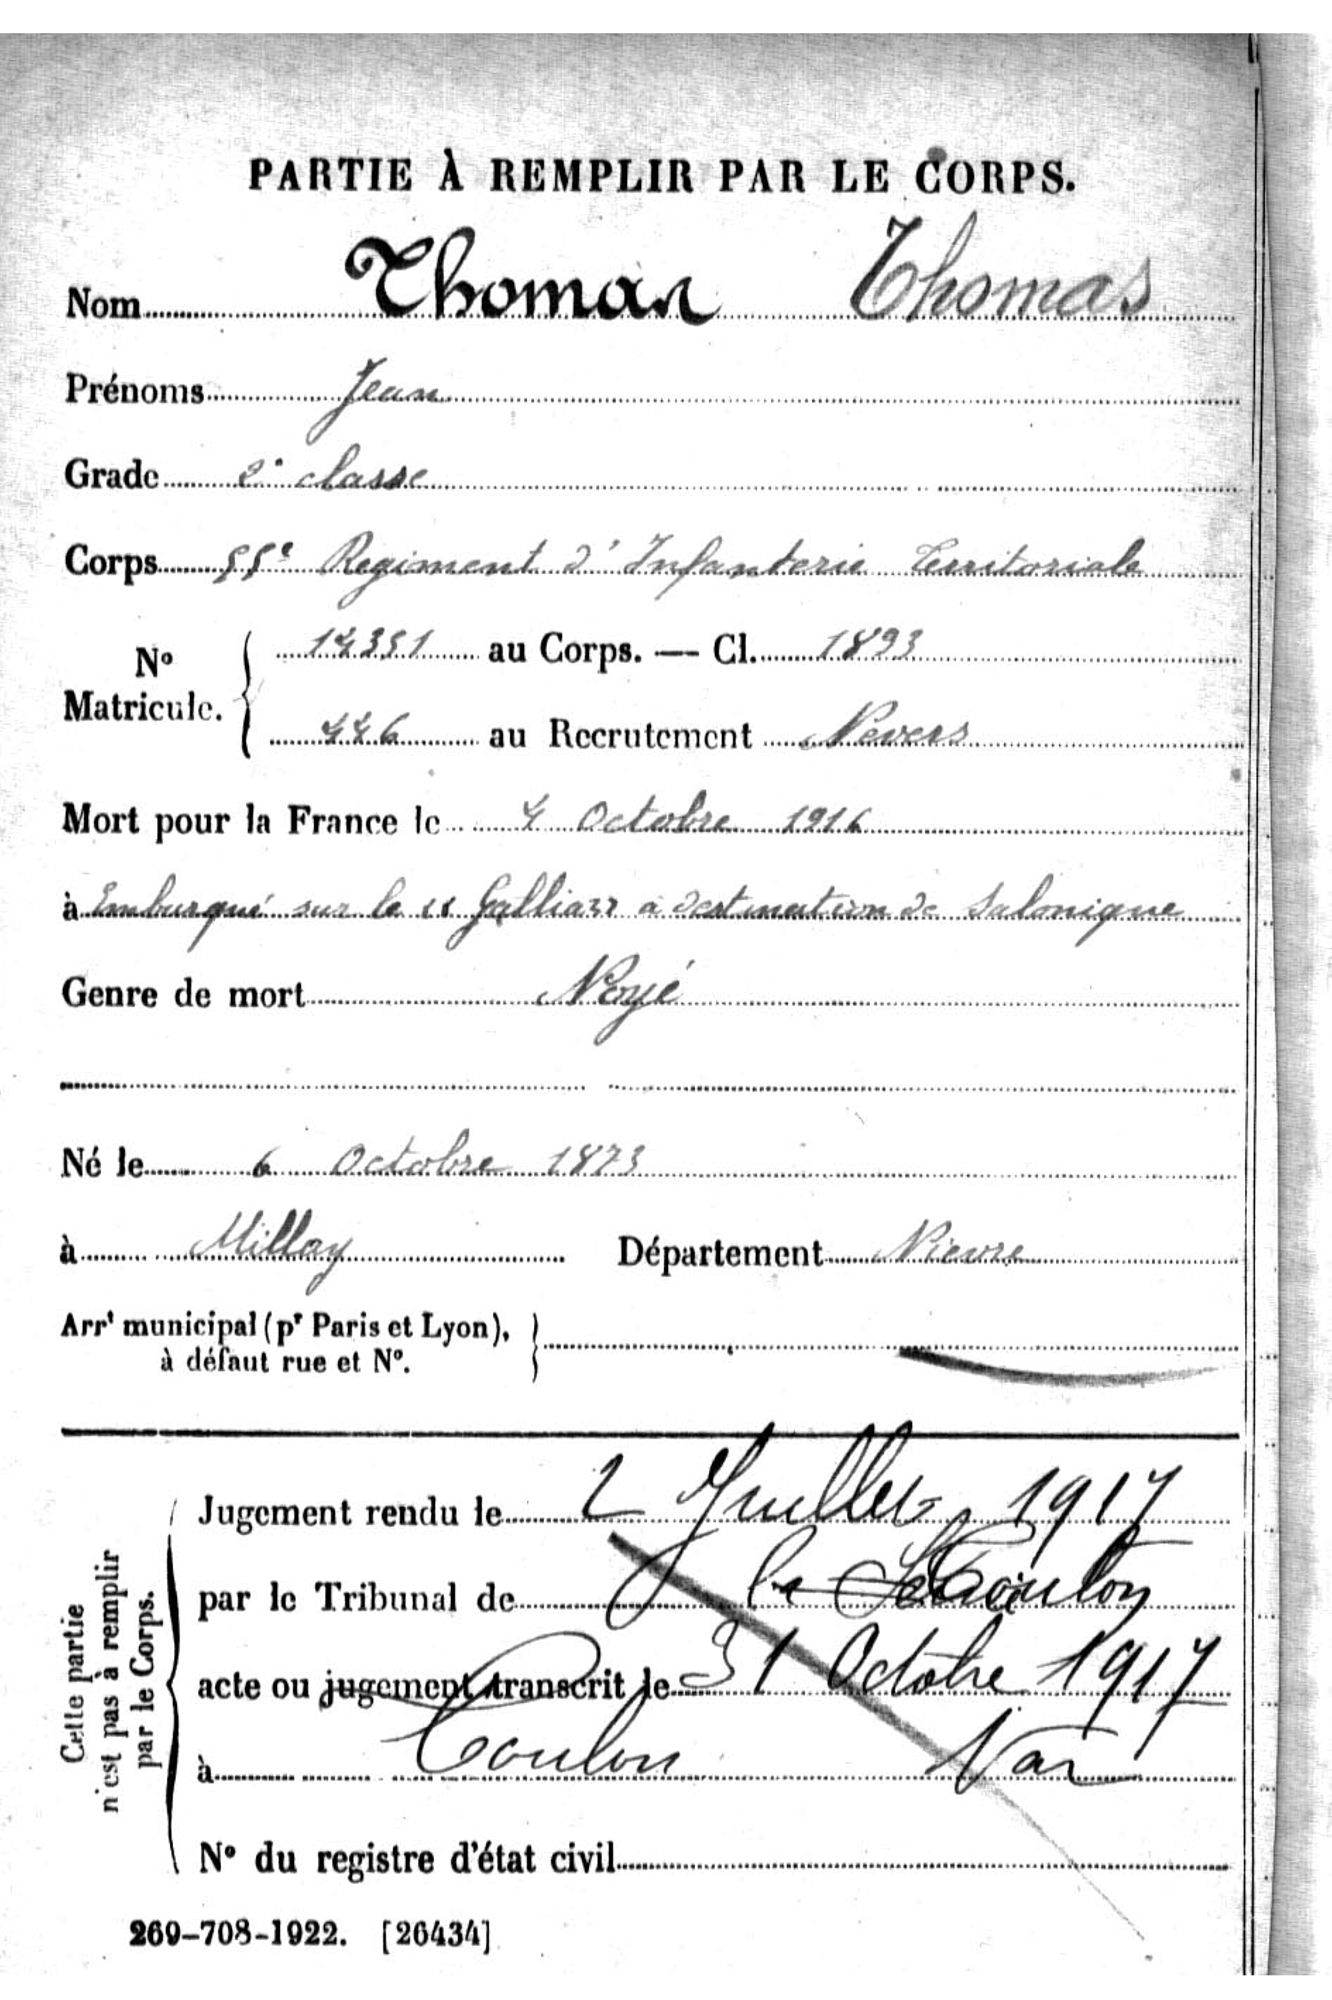 PARTIE À REMPLIR PAR LE CORPS.
Nom Thomas Thomas
Prénoms Jean
Grade 2e classe
Corps 55e Regiment d'Infanterie Territoriale
No Matricule. { 14351 au Corps. — Cl. 1893
446 au Recrutement Nevers
Mort pour la France le 4 Octobre 1916
à Embarqué sur le "Gallia" a destination de Salonique
Genre de mort Noyé
Né le 6 Octobre 1873
à Millay Département Nievre
Arrt municipal (pr Paris et Lyon), }
à défaut rue et No.
Cette partie
n'est pas à remplir
par le Corps.
Jugement rendu le 2 Juillet 1917
par le Tribunal de Toulon
acte ou jugement transcrit le 31 Octobre 1917
à Toulon Var
No du registre d'état civil
269-708-1922. [26434]